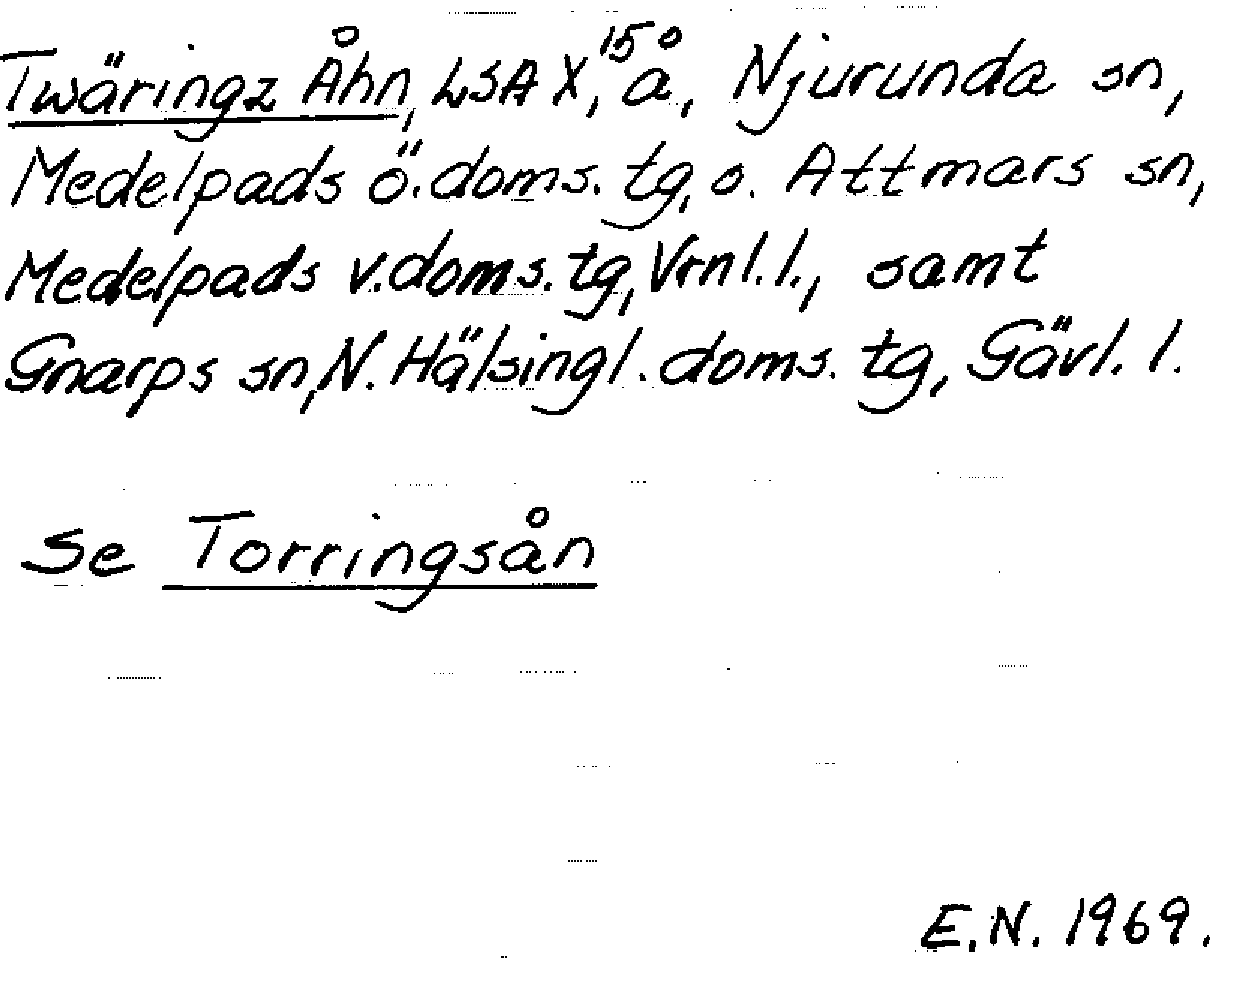 Twäringz Åhn, LSA X, 15 å, Njurunda sn,
Medelpads ö. doms. tg, o. Attmars sn,
Medelpads v. doms. tg, Vrnl. l., samt
Gnarps sn, N. Hälsingl. doms. tg, Gävl. l.
Se Torringsån
E.N. 1969.